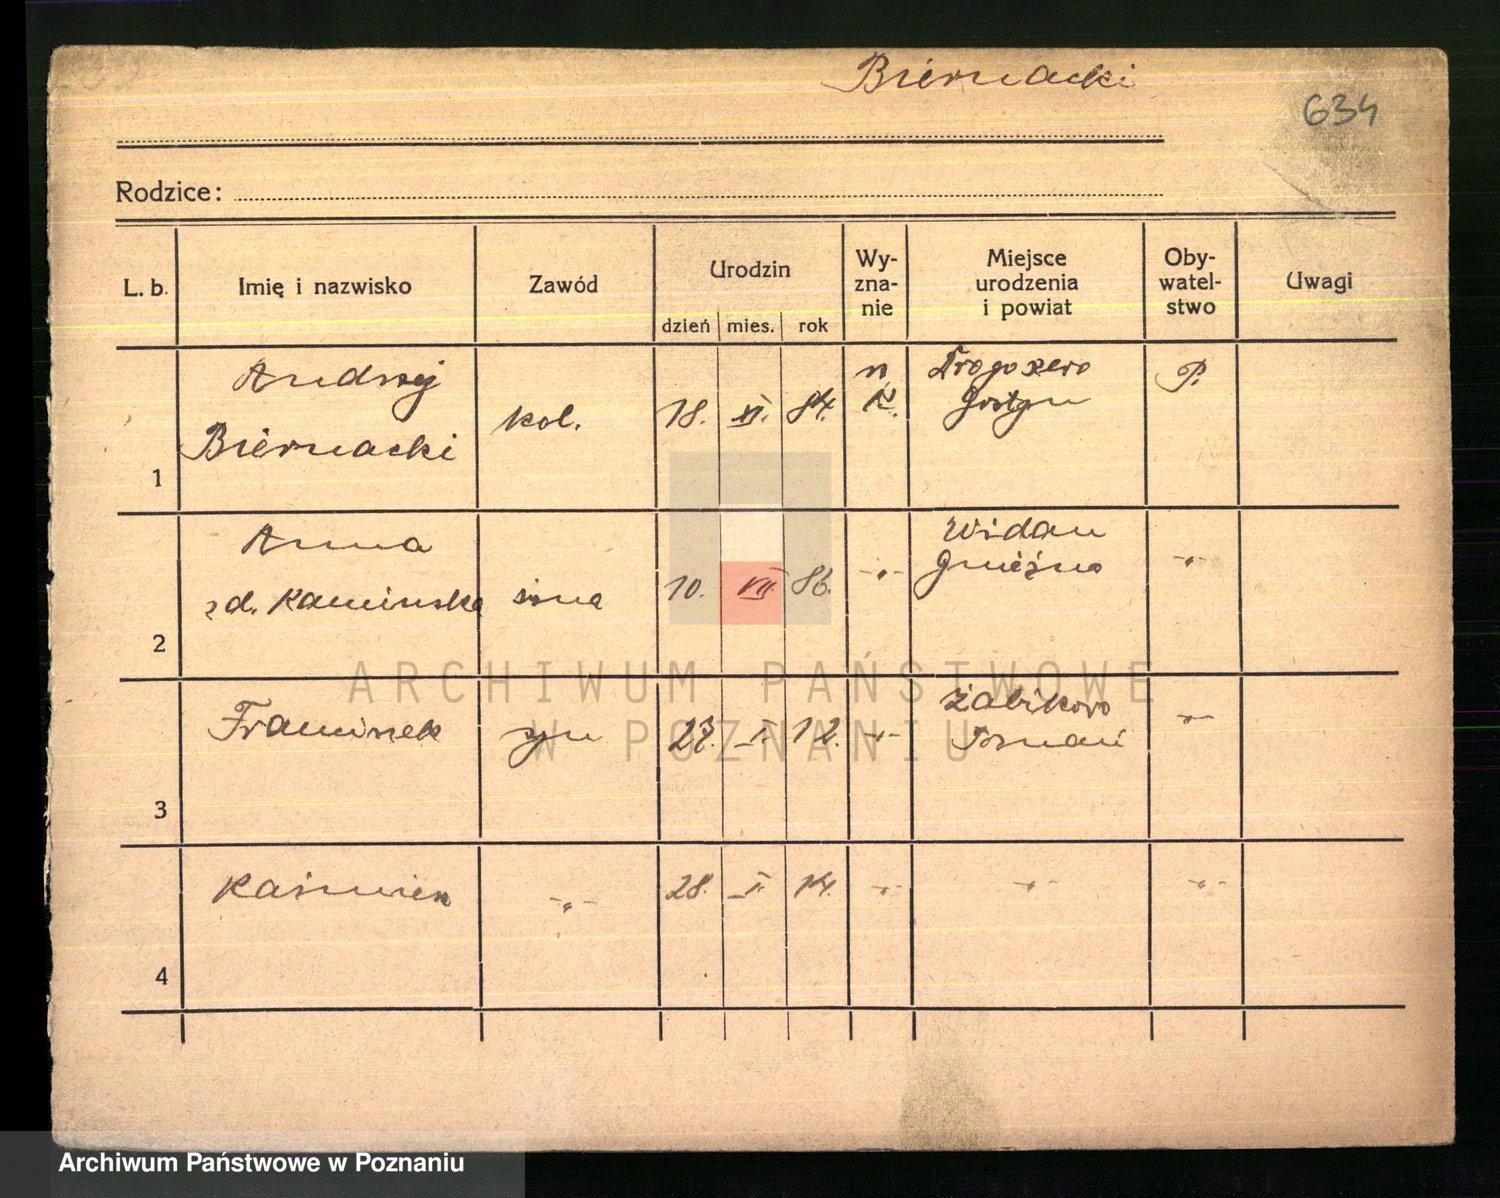 Biernacki
634
Rodzice:
L. b.
Imię i nazwisko
Zawód
Urodzin
dzień
mies.
rok
Wy-
zna-
nie
Miejsce
urodzenia
i powiat
Oby-
watel-
stwo
Uwagi
1
Andrzej
Biernacki
kol.
18.
XI.
84.
Gostyn
P.
2
Anna
zd. Kaminska
żona
10.
VII.
86.
-„-
Gniezno
-„-
3
Franciszek
syn
I.
12.
-„-
Żabikowo
Poznań
-„-
4
Kaźmierz
-„-
28.
I.
14.
-„-
-„-
-„-
ARCHIWUM PAŃSTWOWE
W POZNANIU
Archiwum Państwowe w Poznaniu